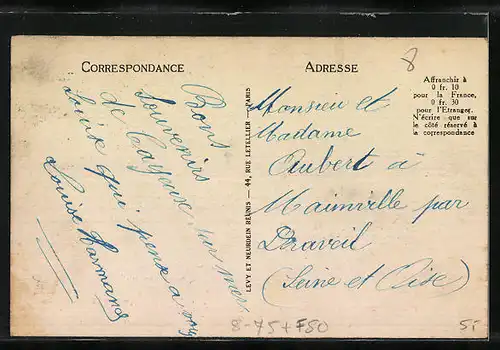 CORRESPONDANCE
Bons
Souvenirs
de Cayeux sur mer
Louise qui pense à vous
Louise Marmand
LEVY ET NEURDEIN REUNIS — 44, RUE LETELLIER — PARIS
ADRESSE
8
Affranchir à
0 fr. 10
pour la France,
0 fr. 30
pour l'Etranger.
N'écrire que sur
le côté réservé à
la correspondance
Monsieur et
Madame
Aubert à
Mainville par
Draveil
(Seine et Oise)
8-75+F80